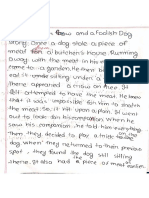 a Crow and a Foolish Dog
Story: Once a dog stole a piece of
meat from a butcher's house. Running
away with the meat in his mouth he
came to a garden. He then began to
eat it while sitting under a tree.
There appeared a crow on a tree. It
also attempted to have the meat. He knew
that it was impossible for him to snatch
the meat. So, it hit upon a plan. It went
out to look for his companion. When he
saw his companion, he told him all
Then they decided to play a trick on the
dog. When they returned to their previous
spot, they found the dog still sitting
there. It also had a piece of meat